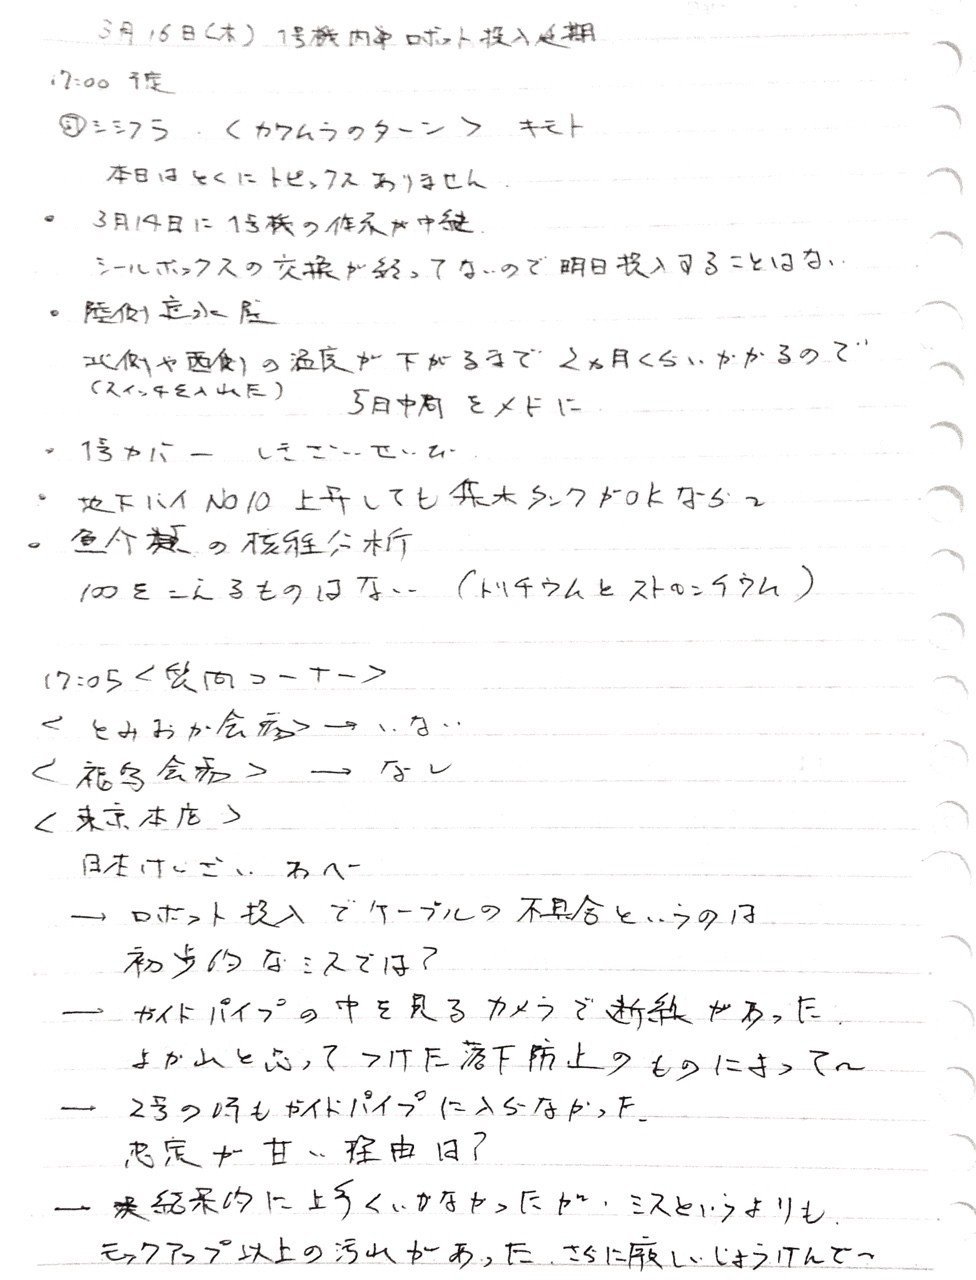 3月16日(木) 1号機内中ロボット投入延期
17:00 予定
シシクラ 〈カワムラのターン〉 キモト
本日はとくにトピックスありません
・ 3月14日に1号機の作業が中継
シールボックスの交換が終ってないので明日投入することはない
・ 陸側遮水壁
北側や西側の温度が下がるまで2ヵ月くらいかかるので
(スイッチを入れた) 5日中旬をメドに
・ 1号カバー しきざいせいび
・ 地下バイNO10 上昇しても集水タンクがOKなら〜
・ 魚介類の核種分析
100をこえるものはない (トリチウムとストロンチウム)
17:05 〈質問コーナー〉
〈とみおか会場〉→いない
〈福島会場〉 → なし
〈東京本店〉
日本けいざい あべ
→ ロボット投入でケーブルの不具合というのは
初歩的なミスでは?
→ ガイドパイプの中を見るカメラで断線があった
よかれと思ってつけた落下防止のものによって〜
→ 2号の時もガイドパイプに入らなかった
想定が甘い理由は?
→ 結果的に上手くいかなかったが、ミスというよりも
モックアップ以上の汚れがあった さらに厳しいじょうけんで〜